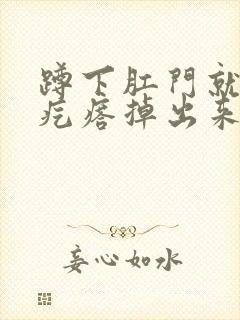 蹲下肛門就
疙瘩掉出来
妄心如水